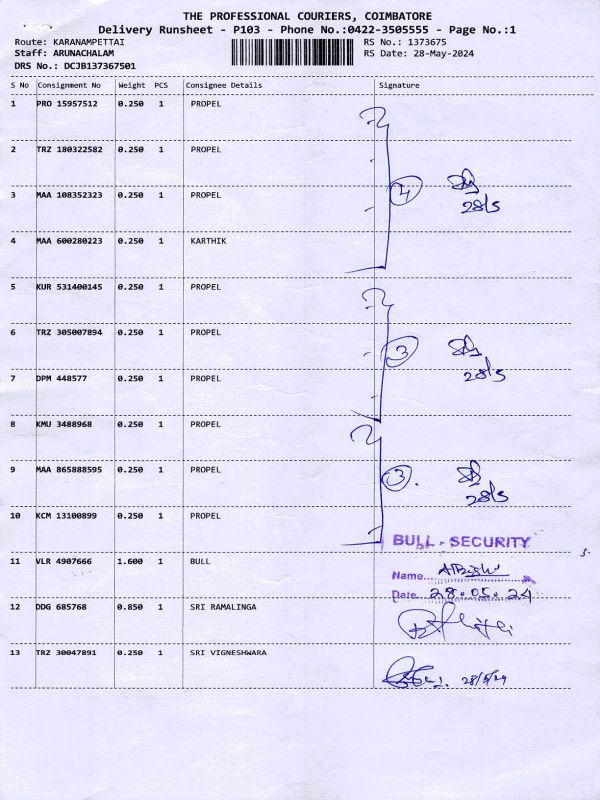 THE PROFESSIONAL COURIERS, COIMBATORE
Delivery Runsheet - P103 - Phone No.:0422-3505555 - Page No.:1
Route: KARANAMPETTAI RS No.: 1373675
Staff: ARUNACHALAM RS Date: 28-May-2024
DRS No.: DCJB137367501
S No Consignment No Weight PCS Consignee Details Signature
1 PRO 15957512 0.250 1 PROPEL
2 TRZ 180322582 0.250 1 PROPEL
3 MAA 108352323 0.250 1 PROPEL
4 28/5
4 MAA 600280223 0.250 1 KARTHIK
5 KUR 531400145 0.250 1 PROPEL
6 TRZ 305007894 0.250 1 PROPEL
3 28/5
7 DPM 448577 0.250 1 PROPEL
8 KMU 3488968 0.250 1 PROPEL
9 MAA 865888595 0.250 1 PROPEL
3 28/5
10 KCM 13100899 0.250 1 PROPEL
BULL - SECURITY
11 VLR 4907666 1.600 1 BULL
Name
Date 28.05.24
12 DDG 685768 0.850 1 SRI RAMALINGA
13 TRZ 30047891 0.250 1 SRI VIGNESHWARA
28/5/24